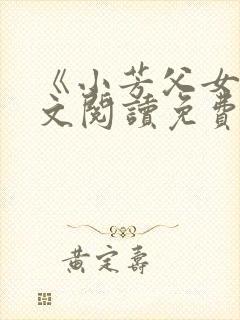 《小芳父女
文閱讀免費
黃定壽